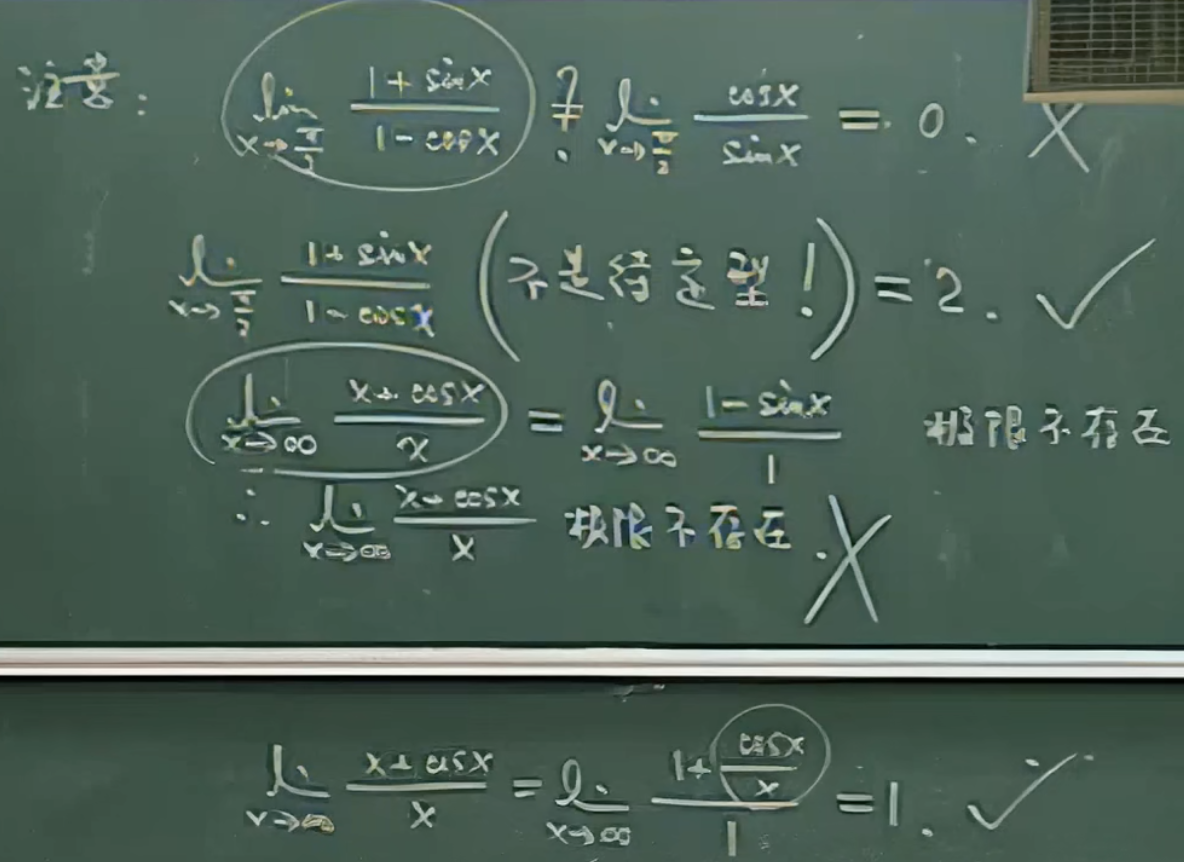 注意: lim x→π/2 (1+sinx)/(1-cosx) ≟ lim x→π/2 cosx/sinx = 0. ✗
lim x→π/2 (1+sinx)/(1-cosx) (不是待定型!) = 2. ✓
lim x→∞ (x+cosx)/x = lim x→∞ (1-sinx)/1 极限不存在
∴ lim x→∞ (x+cosx)/x 极限不存在. ✗
lim x→∞ (x+cosx)/x = lim x→∞ (1+cosx/x)/1 = 1. ✓